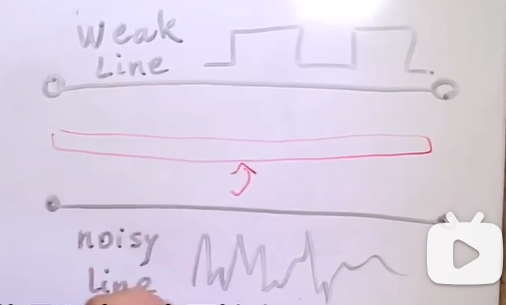 weak
Line
noisy
line